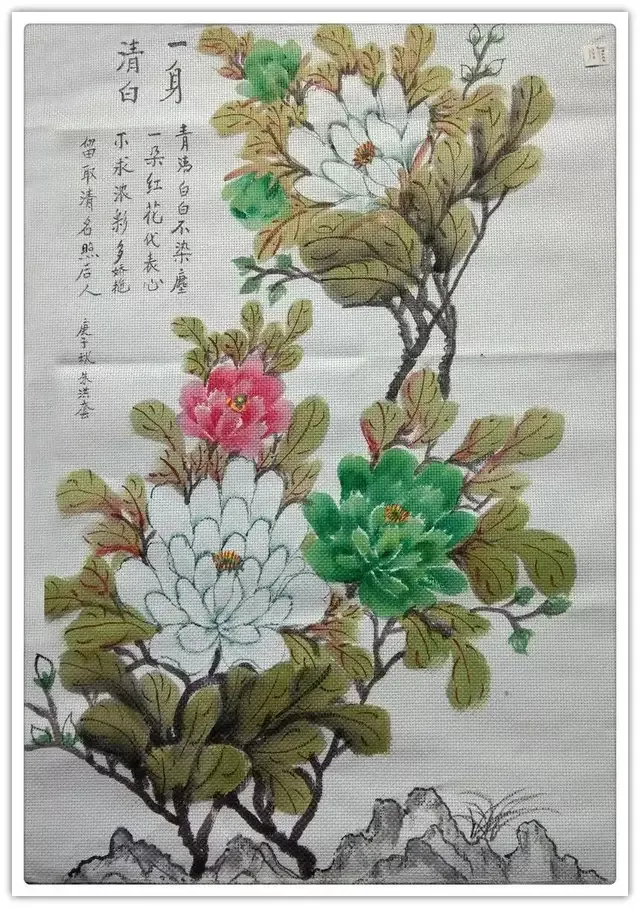 一身
清白
青白白不染塵
一朵红花代表心
不求浓彩多娇艳
留取清名照后人
庚子秋 朱洪